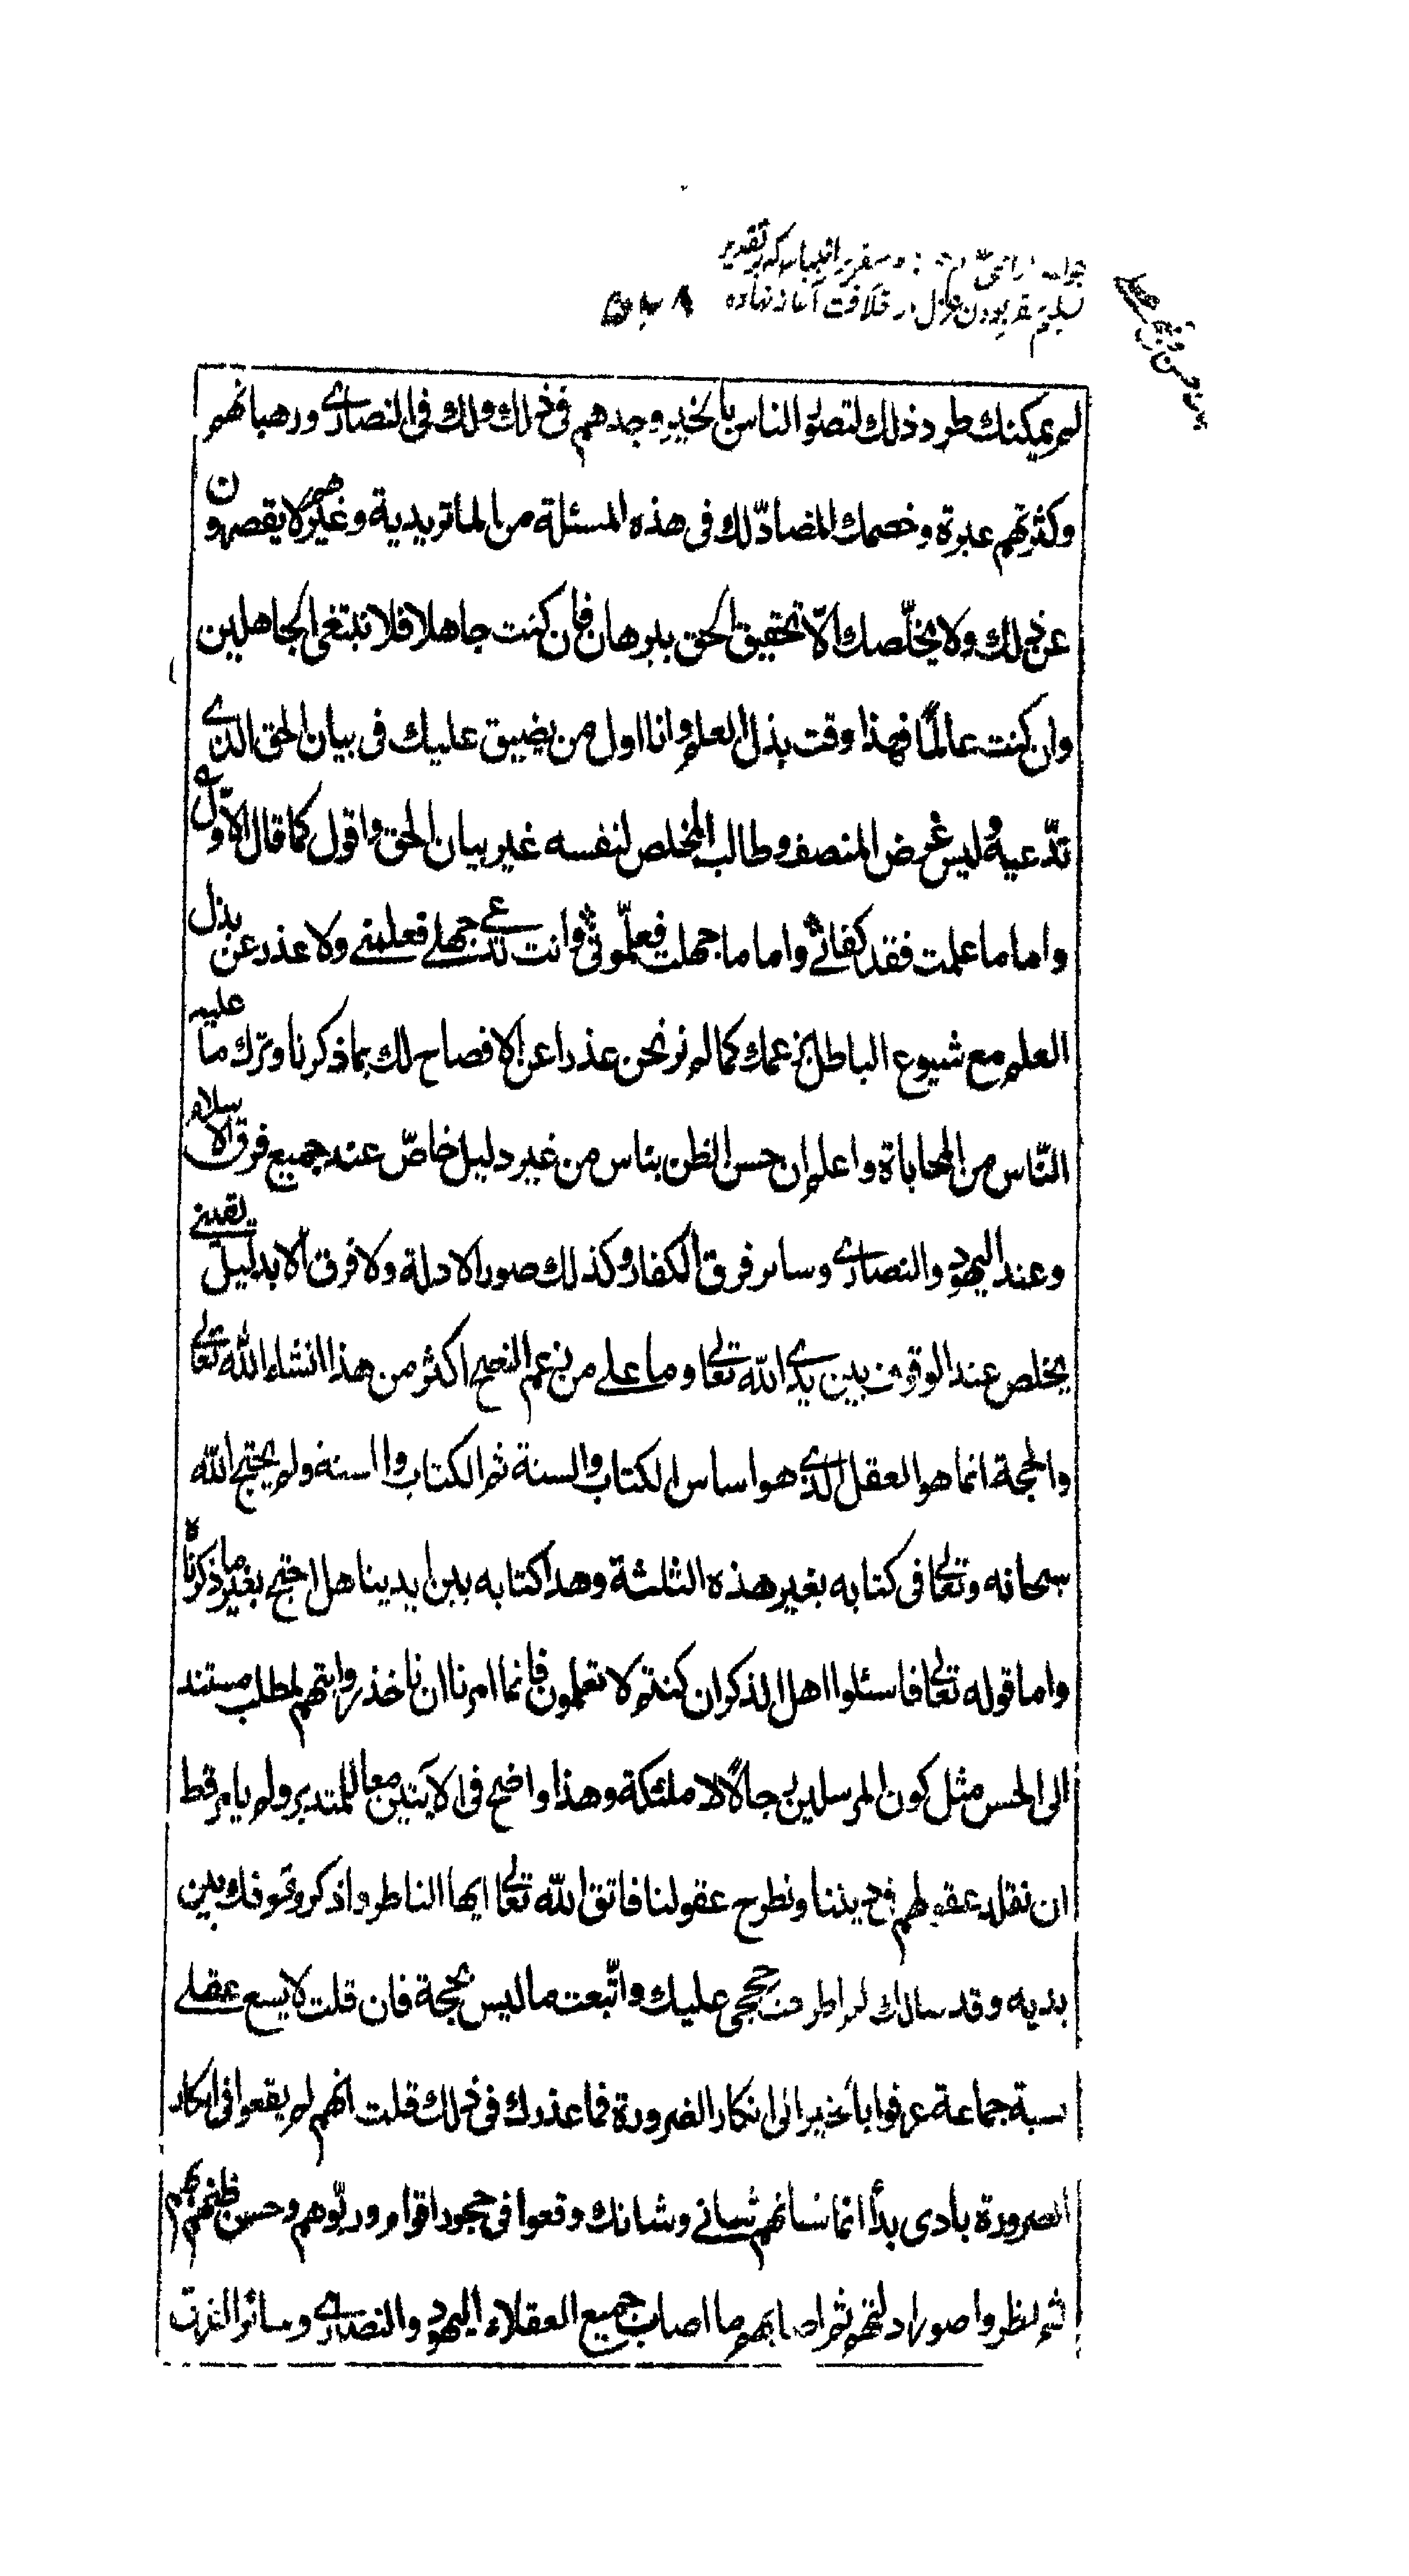 خلافت آغاز نهاده
لم يمكنك طرد ذلك لتصلو الناس بالخير وجدهم في ذلك ولك في النصارى ورهبانهم
وكثرتهم عبرة وخصمك المضادّ لك في هذه المسئلة من الماتريدية وغيرهم لا يقصرون
عن ذلك ولا يخلّصك الّا تحقيق الحق ببرهان فان كنت جاهلا فلا نبتغي الجاهلين
وان كنت عالمًا فهذا وقت بذل العلم وانا اول من يضيق عليك في بيان الحق الذي
تدّعيه وليس غرض المنصف وطالب المخلص لنفسه غير بيان الحق واقول كما قال الاوّل ع
واما ما علمت فقد كفاني واما ما جهلت فعلّموني وانت تدعي جهلي فعلمني ولا عذر عن بذل
العلم مع شيوع الباطل بزعمك كما لم نر نحن عذرا عن الافصاح لك بما ذكرنا وترك ما عليه
النّاس من المحاباة واعلم ان حسن الظن بناس من غير دليل خاصّ عند جميع فرق الاسلام
وعند اليهود والنصارى وساير فرق الكفار وكذلك صور الادلة ولا فرق الّا بدليل يقيني
يخلص عند الوقوف بين يدي الله تعالى وما على من يزعم النصح اكثر من هذا انشاء الله تعالى
والحجة انما هو العقل الذي هو اساس الكتاب والسنة ثم الكتاب والسنة ولم يحتج الله
سبحانه وتعالى في كتابه بغير هذه الثلثة وهذا كتابه بين ايدينا هل احتج بغير ما ذكرناه
واما قوله تعالى فاسئلوا اهل الذكر ان كنتم لا تعلمون فانما امرنا ان ناخذ روايتهم لمطلب مستند
الى الحس مثل كون المرسلين رجالًا لا ملئكة وهذا واضح في الآيتين معا للمتدبر ولم يامر قط
ان نقلد عقولهم في ديننا ونطرح عقولنا فاتق الله تعالى ايها الناظر واذكر وقوفك بين
يديه وقد سالك لم اطرحت حججي عليك واتّبعت ما ليس بحجة فان قلت لا يسع عقلي
نسبة جماعة عرفوا بالخير الى انكار الضرورة فما عذرك في ذلك قلت انهم لم يقعوا في انكار
الضرورة بادي بدأ انما شانهم شاني وشانك وقعوا في حجور اقوام وربّوهم وحسن ظنهم بهم
ثم نظروا صور ادلتهم ثم اصابهم ما اصاب جميع العقلاء اليهود والنصارى وسائر الفرق